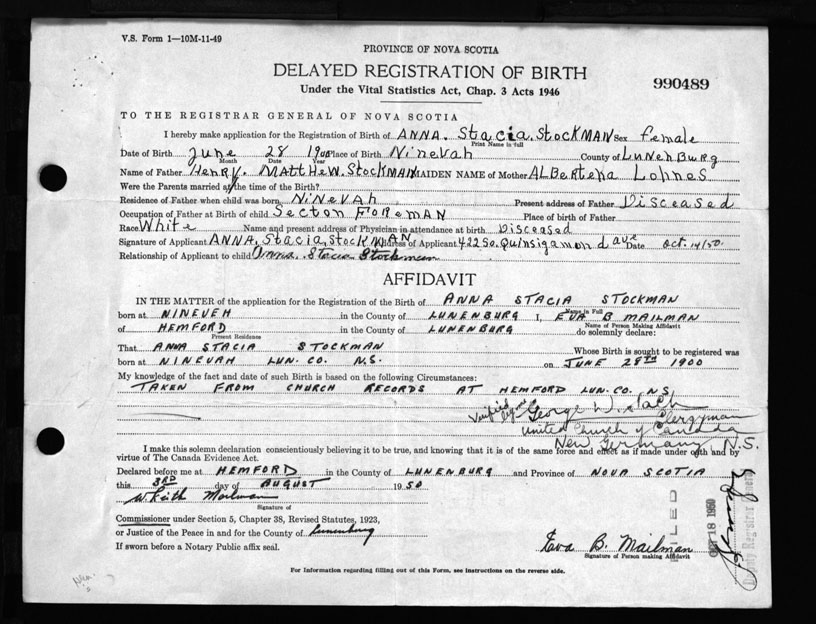 V.S. Form 1—10M-11-49
PROVINCE OF NOVA SCOTIA
DELAYED REGISTRATION OF BIRTH
990489
Under the Vital Statistics Act, Chap. 3 Acts 1946
TO THE REGISTRAR GENERAL OF NOVA SCOTIA
I hereby make application for the Registration of Birth of ANNA. Stacia. STOCKMAN Sex female
Print Name in full
Date of Birth June 28 1900 Place of Birth Ninevah County of LUNENBURG
Month Date Year
Name of Father HENRY. MATTHEW. STOCKMAN MAIDEN NAME of Mother ALBERTENA Lohnes
Were the Parents married at the time of the Birth?
Residence of Father when child was born NINEVAH Present address of Father Disceased
Occupation of Father at Birth of child Secton FOREMAN Place of birth of Father
Race White Name and present address of Physician in attendance at birth Disceased
Signature of Applicant ANNA, Stacia, STOCKMAN Address of Applicant 422 So. Quinsigamond ave Date Oct. 14/50.
Relationship of Applicant to child Anna. Stacia Stockman
AFFIDAVIT
IN THE MATTER of the application for the Registration of the Birth of ANNA STACIA STOCKMAN
Name in Full
born at NINEVEH in the County of LUNENBURG I, EVA B MAILMAN
of HEMFORD in the County of LUNENBURG do solemnly declare:
Present Residence Name of Person Making Affidavit
That ANNA STACIA STOCKMAN Whose Birth is sought to be registered was
born at NINEVAH LUN. CO. N.S. on JUNE 28TH 1900
My knowledge of the fact and date of such Birth is based on the following Circumstances:
TAKEN FROM CHURCH RECORDS AT HEMFORD LUN. CO. N.S.
Verified by me George W.
Clergyman
United Church of Canada
New Germany, N.S.
I make this solemn declaration conscientiously believing it to be true, and knowing that it is of the same force and effect as if made under oath and by
virtue of The Canada Evidence Act.
Declared before me at HEMFORD in the County of LUNENBURG and Province of NOVA SCOTIA
this 3RD day of AUGUST 1950
W. Keith Mailman
Signature of
Commissioner under Section 5, Chapter 38, Revised Statutes, 1923,
or Justice of the Peace in and for the County of Lunenburg
If sworn before a Notary Public affix seal.
Eva B. Mailman
Signature of Person making Affidavit
FILED
OCT 18 1950
Deputy Registrar General
For Information regarding filling out of this Form, see instructions on the reverse side.